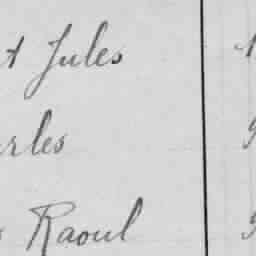 t Jules
arles
Raoul